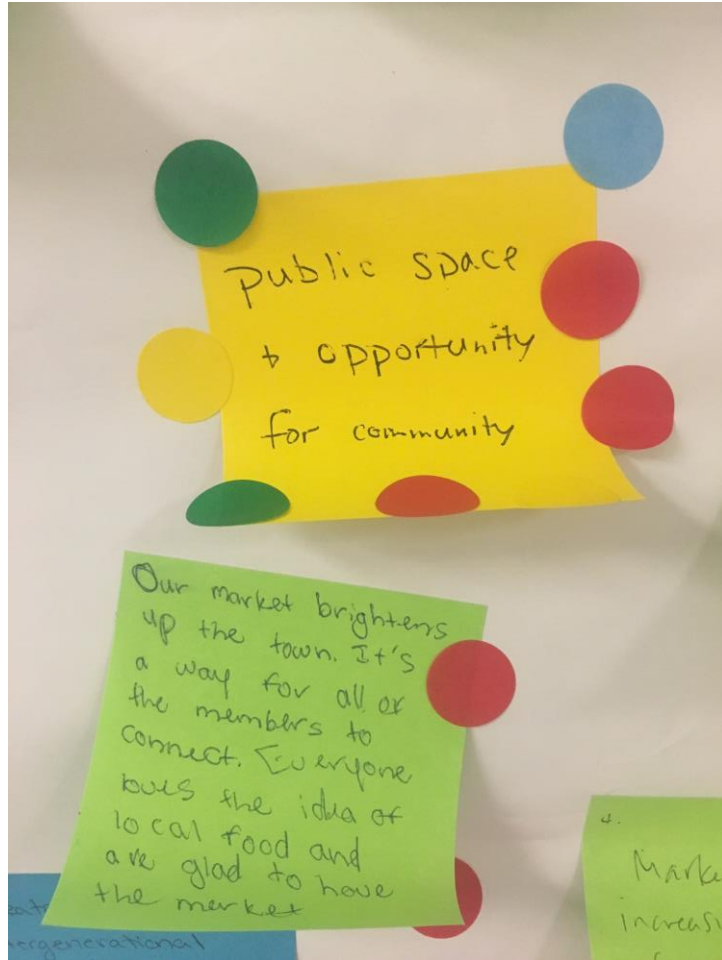 public space
+ opportunity
for community
Our market brightens
up the town. It's
a way for all of
the members to
connect. Everyone
loves the idea of
local food and
are glad to have
the market
4.
Marke
increasi
eat
ergenerational